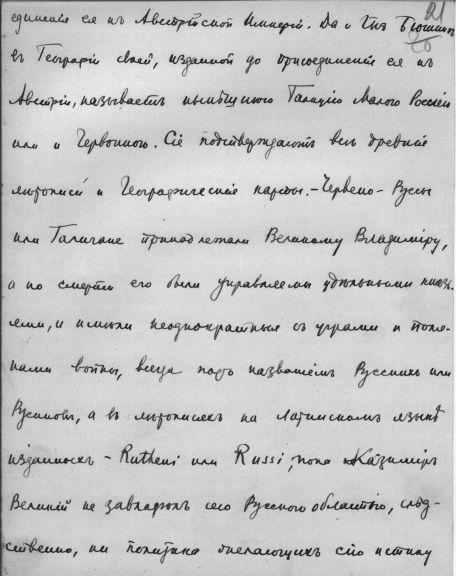 21
20
единенія ея къ Австрійской Имперіи. Да и Гнъ Бюшингъ
въ Географіи своей, изданной до присоединенія ея къ
Австріи, называетъ нынѣшнюю Галицію Малою Россіею
или и Червонною. Сіе подтверждаютъ всѣ древнія
лѣтописи и Географическія карты. – Червено-Руссы
или Галичане принадлежали Великому Владиміру,
а по смерти его были управляемы удѣльными князь-
ями, и имѣли неоднократныя съ уграми и поля-
ками войны, всегда подъ названіемъ Русскихъ или
Русиновъ, а въ лѣтописяхъ на латинскомъ языкѣ
изданныхъ – Rutheni или Russi, пока Казиміръ
Великій не завладѣлъ сею Русскою областію, слѣд-
ственно, ни политика желающихъ сію истину